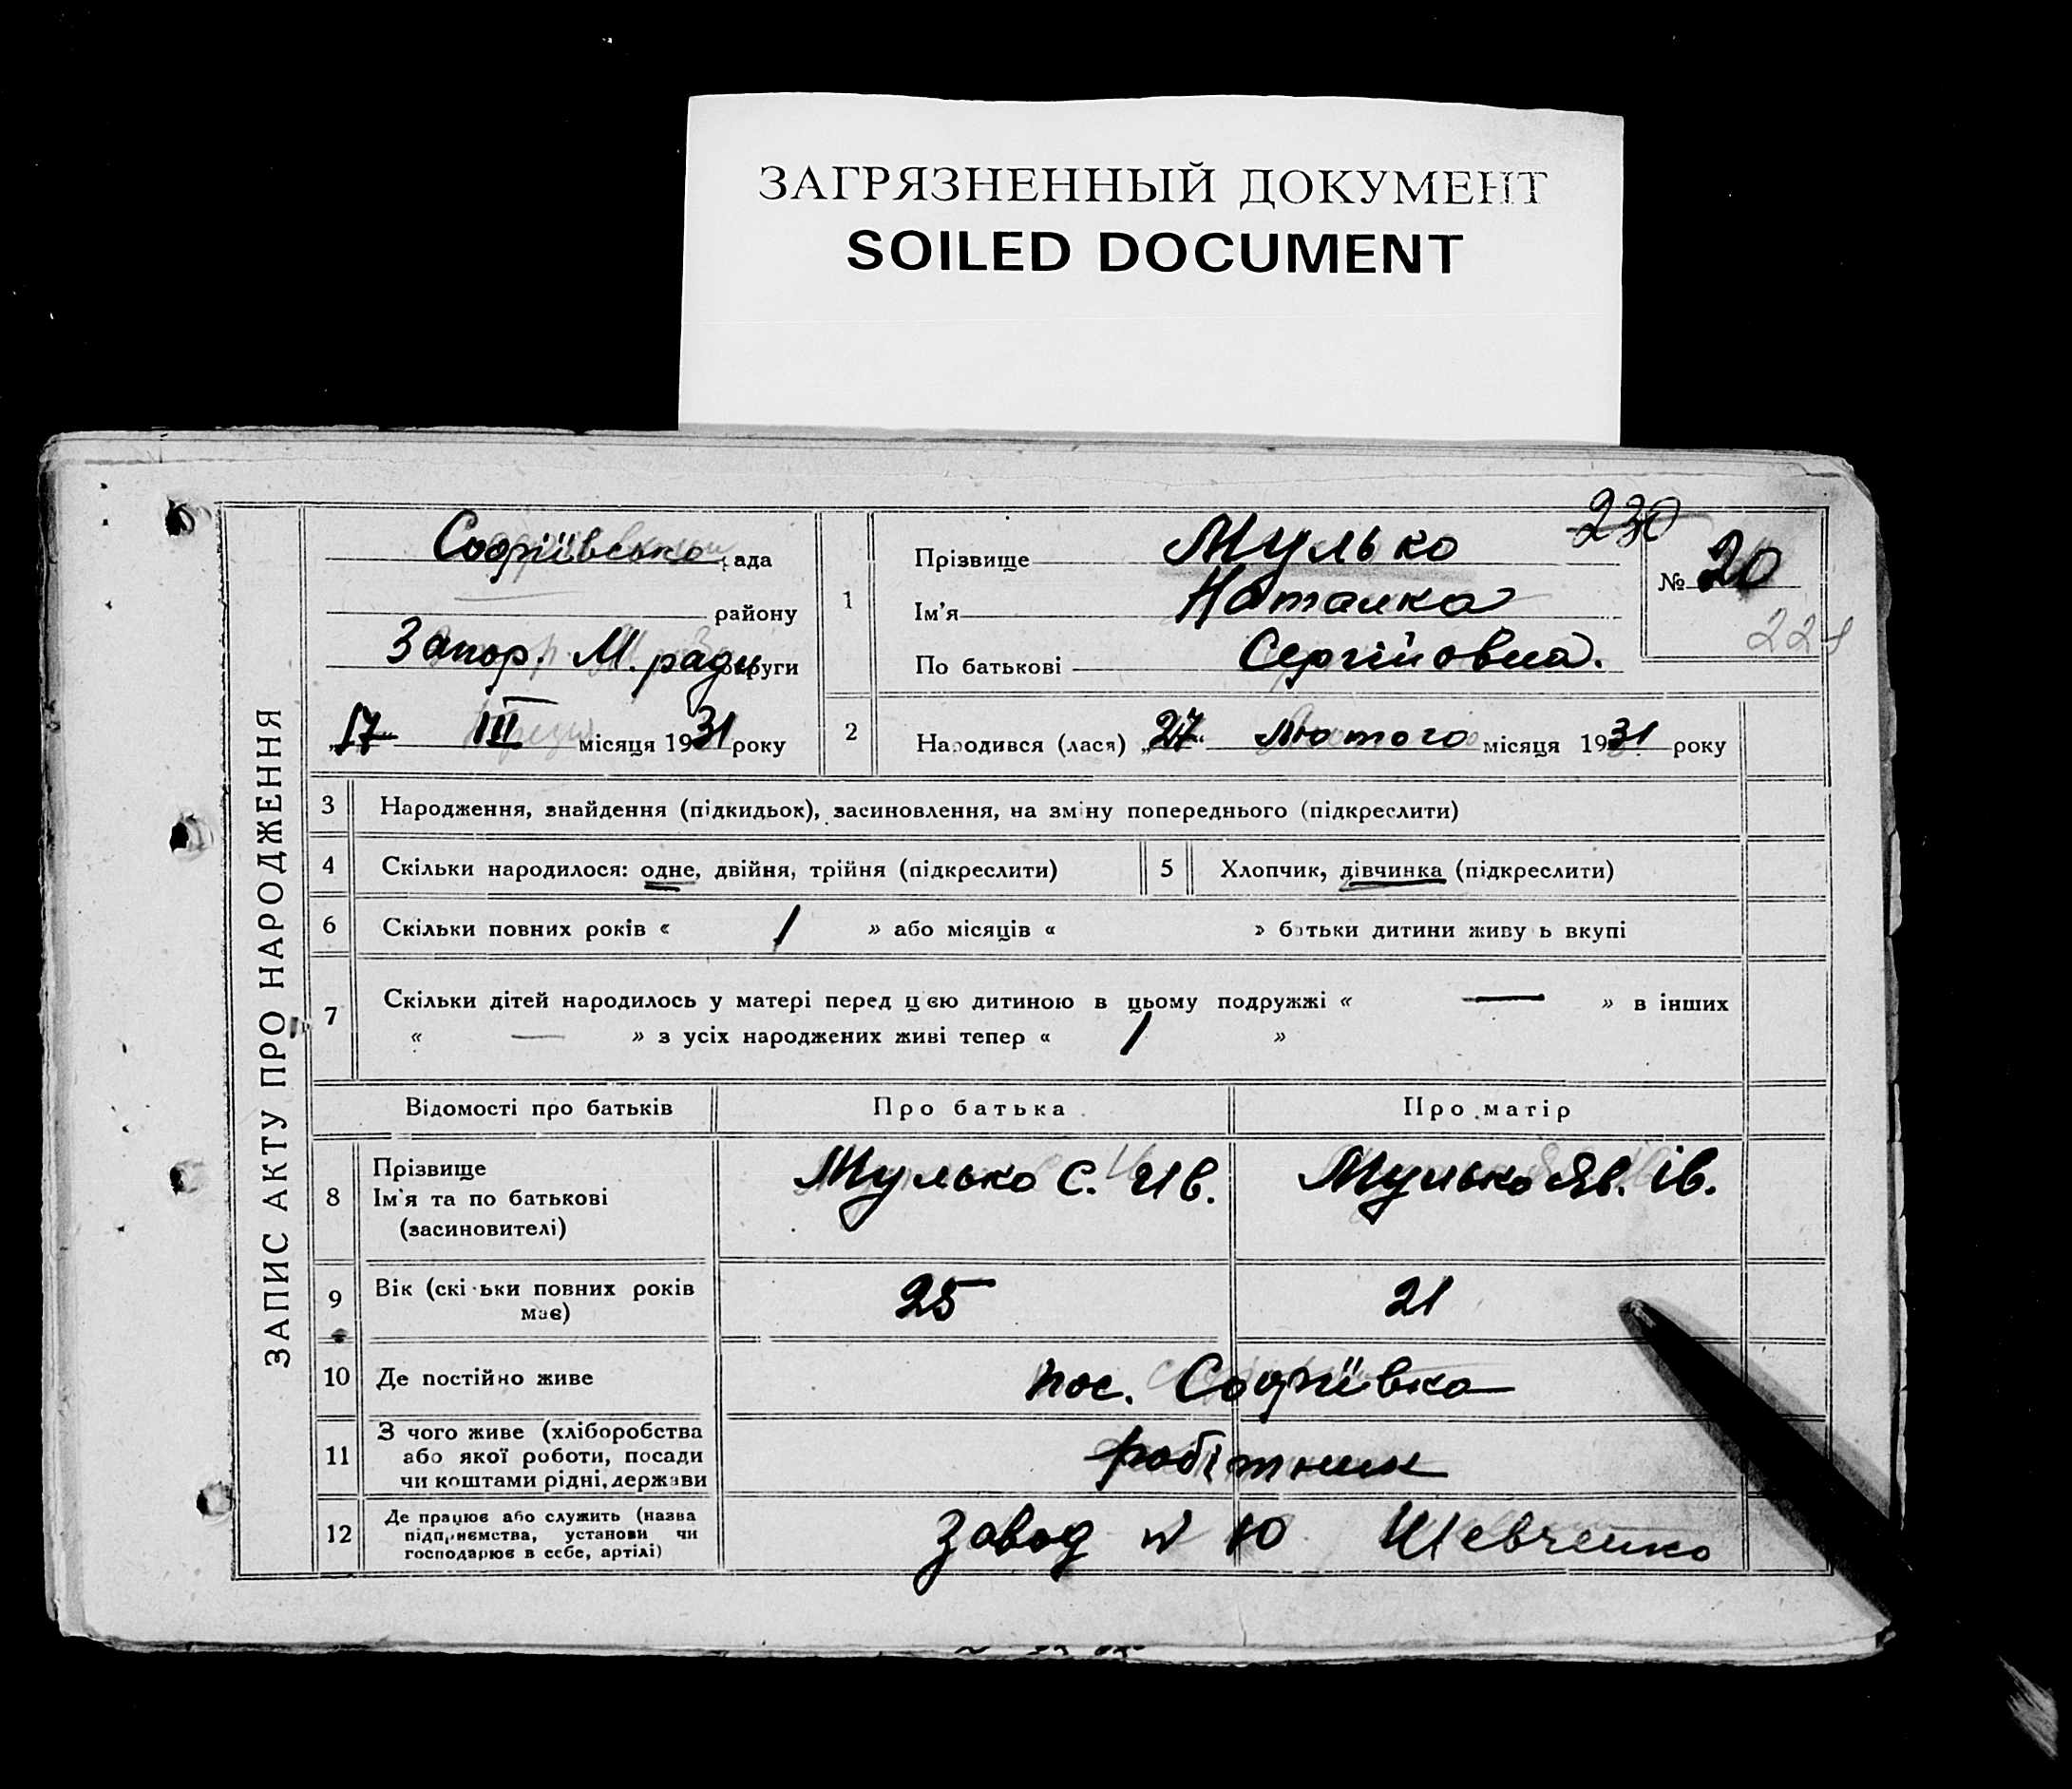 ЗАГРЯЗНЕННЫЙ ДОКУМЕНТ
SOILED DOCUMENT
ЗАПИС АКТУ ПРО НАРОДЖЕННЯ
Софіївська рада
району
Запор. М. ради округи
„17“ III місяця 1931 року
1
Прізвище Мулько
Ім'я Наталка
По батькові Сергійовна.
230
№ 20
221
2 Народився (лася) „27“ Лютого місяця 1931 року
3 Народження, знайдення (підкидьок), засиновлення, на зміну попереднього (підкреслити)
4 Скільки народилося: одне, двійня, трійня (підкреслити) 5 Хлопчик, дівчинка (підкреслити)
6 Скільки повних років « 1 » або місяців « » батьки дитини живуть вкупі
7 Скільки дітей народилось у матері перед цією дитиною в цьому подружжі « — » в інших
« — » з усіх народжених живі тепер « 1 »
Відомості про батьків Про батька Про матір
8 Прізвище
Ім'я та по батькові
(засиновителі)
Мулько С. Ив. Мулько Яв. Ів.
9 Вік (скільки повних років
має)
25 21
10 Де постійно живе пос. Софіївка
11 З чого живе (хліборобства
або якої роботи, посади
чи коштами рідні, держави
робітник
12 Де працює або служить (назва
підприємства, установи чи
господарює в себе, артілі)
Завод № 10 Шевченко